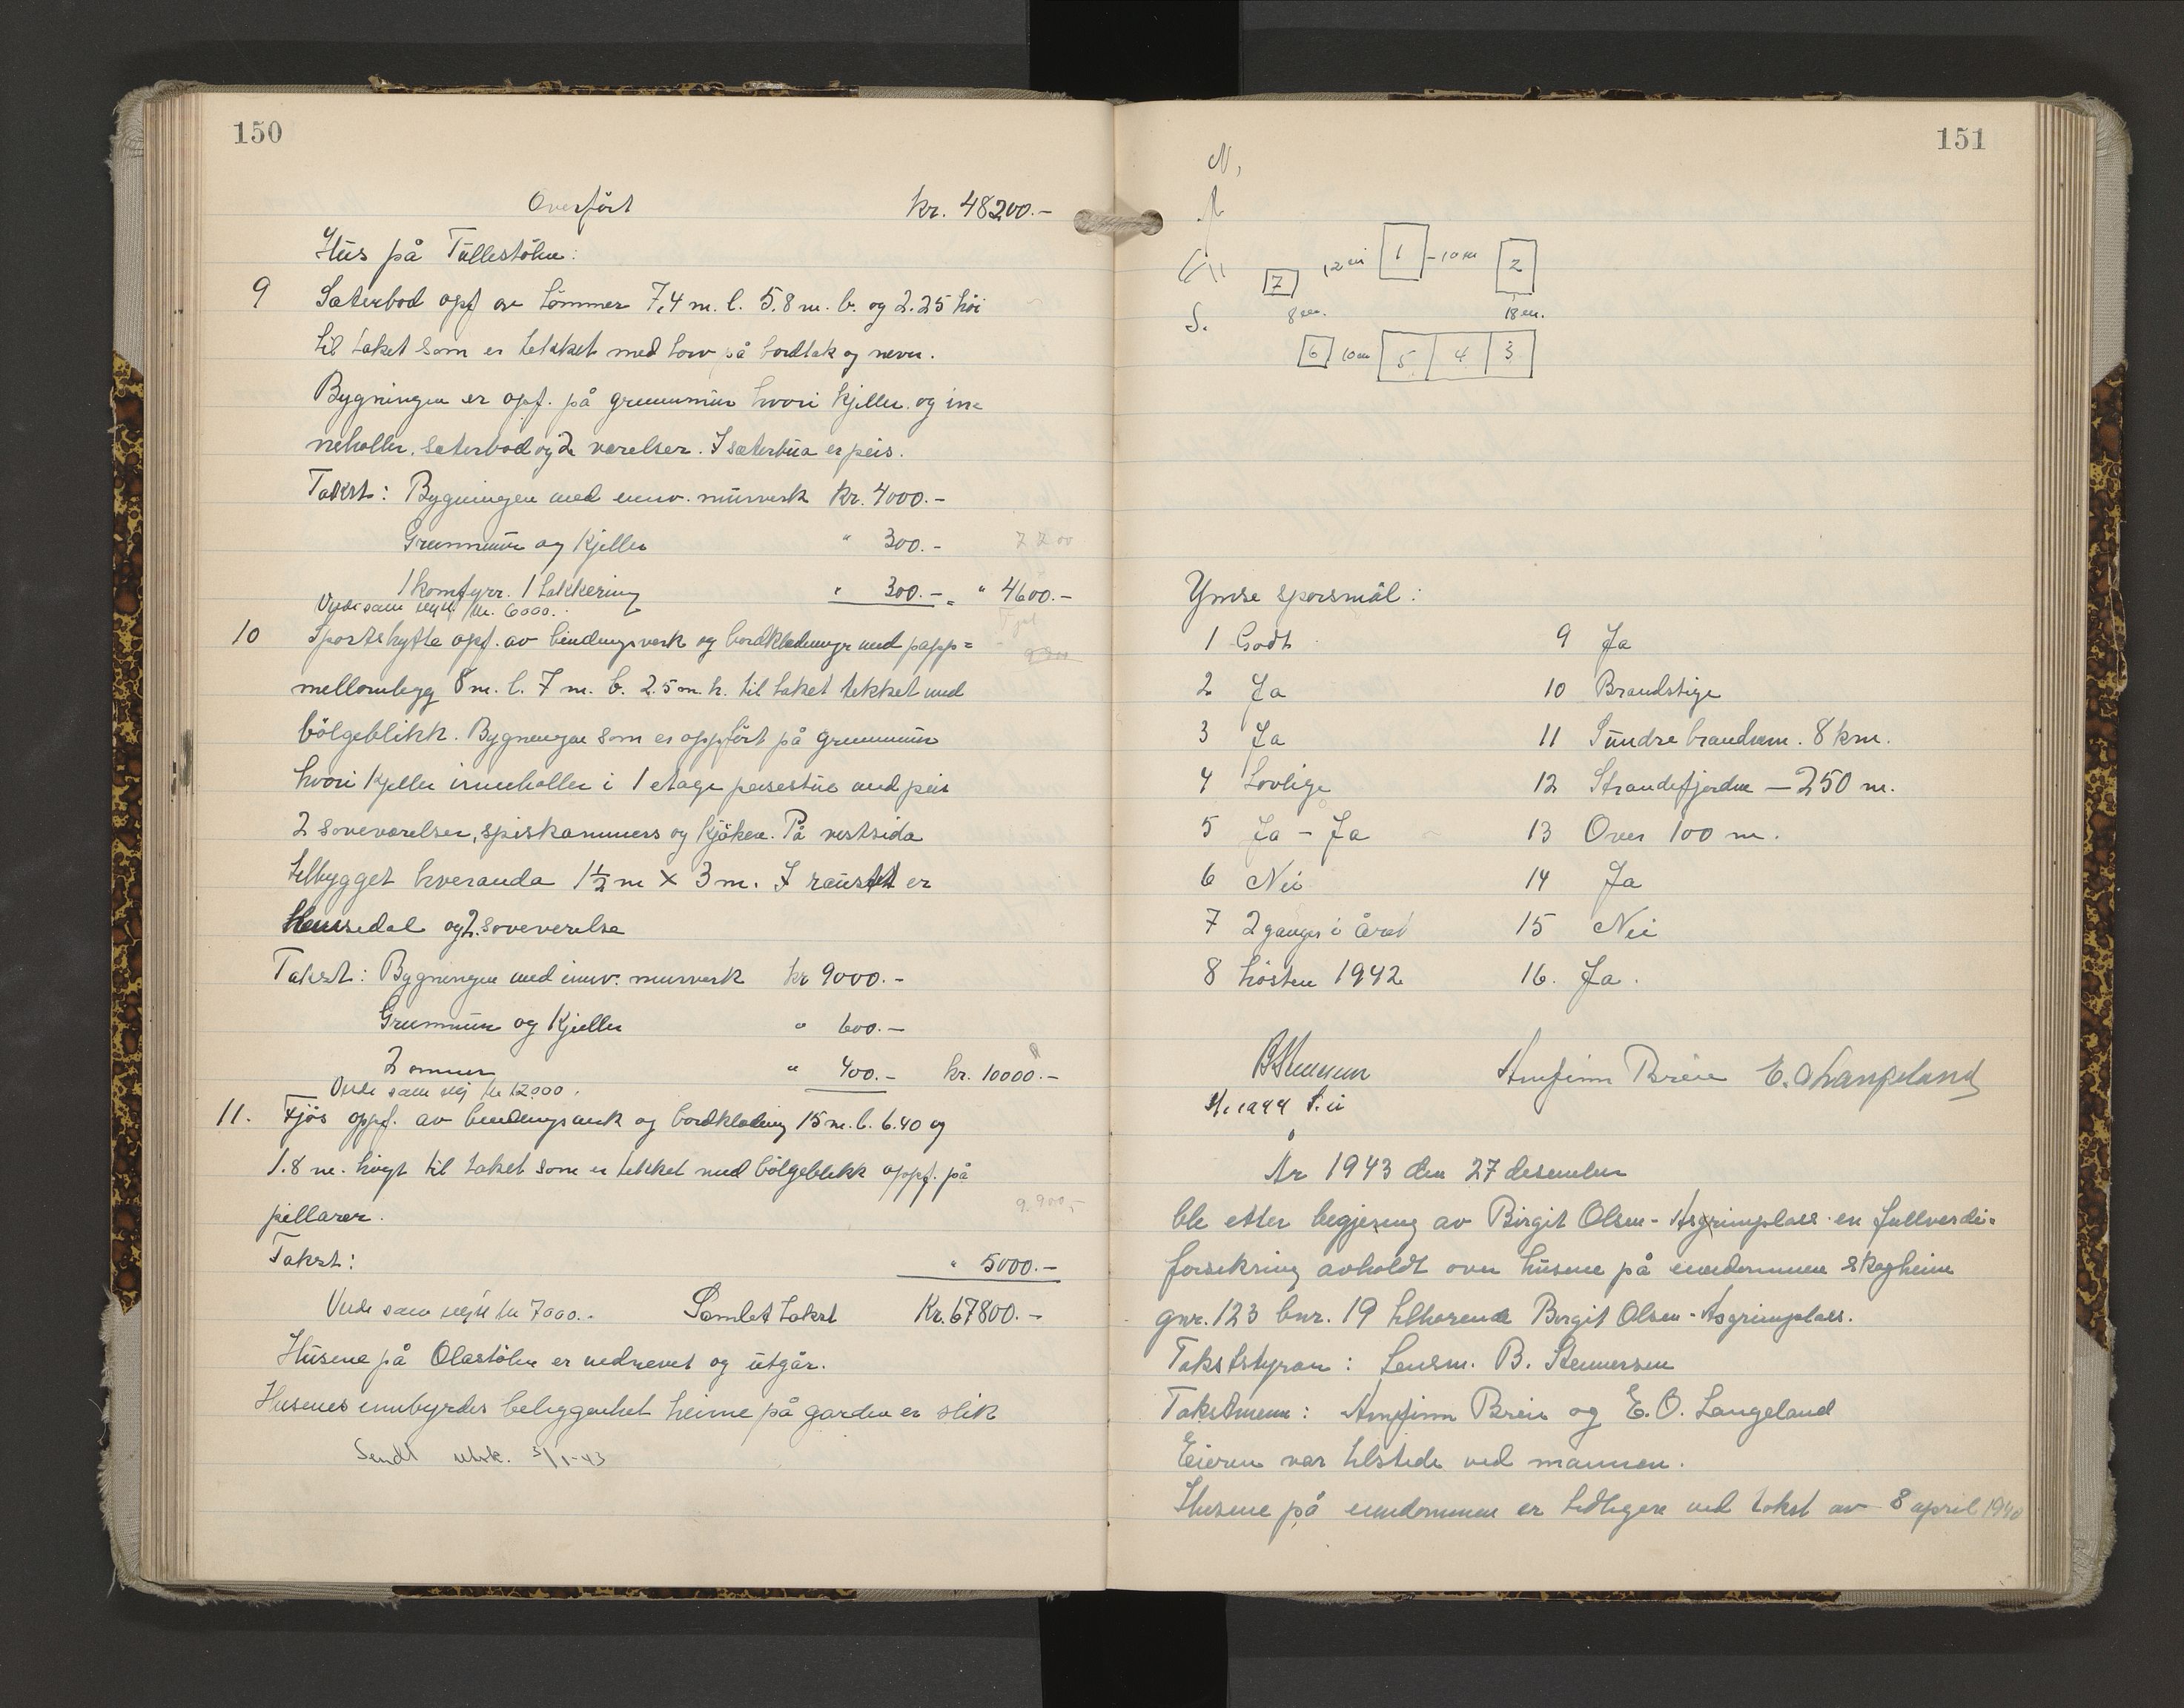 150
Overført kr. 48200.-
Hus på Tüllestölen:
9 Sæterbod opf av tömmer 7,4 m. l. 5.8 m. b. og 2.25 höi
til taket som er tekket med torv på bordtak og never.
Bygningen er opf. på grunnmur hvori kjeller og in=
neholler, seterbod og 2 værelser. I sæterbua er peis.
Takst: Bygningen med innv. murverk kr. 4000.-
Grunnmur og kjeller " 300.- 7200
1 komfyrr. 1 takkering " 300.- = " 4600.-
Verdi som nytt kr. 6000.-
10 Sportshytte opf. av bindingsverk og bordkledninger med papp=
mellomlegg 8 m. l. 7 m. b. 2.5 m. h. til taket tekket med
bölgeblikk. Bygningen som er oppfört på grunnmur
hvori kjeller inneholler i 1 etage peisestue med peis
2 soveværelser, spiskammers og kjöken. På vestsida
tilbygget hveranda 1½ m x 3 m. I raustet er
Hemsedal og 2 soveverelse
Takst: Bygningen med innv. murverk kr 9000.-
Grunnmur og kjeller " 600.-
2 omner " 400.- kr. 10000.-
Verdi som nyj kr 12000.
11. Fjös oppf. av bindingsverk og bordkledning 15 m. l. 6.40 og
1.8 m. högt til taket som er tekket med bölgeblekk oppf. på
pillarer. 9.900,-
Takst: " 5000.-
Verdi som nytt kr 7000.- Samlet takst Kr. 67800.-
Husene på Olastölen er nedrevet og utgår.
Husenes innbyrdes beliggenhet heime på garden er slik
Sendt utsk. 3/1-43
151
N,
S.
7 12 m 1 - 10 m 2
8 m. 18 m.
6 10 m 5 4 3
Ymse sporsmål:
1 Godt 9 Ja
2 Ja 10 Brandstige
3 Ja 11 Sundre brandvern. 8 km.
4 Lovlige 12 Strandefjorden - 250 m.
5 Ja - Ja 13 Over 100 m.
6 Nei 14 Ja
7 2 ganger i året 15 Nei
8 hösten 1942 16. Ja.
BStennersen Arnfinn Breie E. O Langeland
År 1943 den 27 desember
ble etter begjering av Birgit Olsen - Asgrimplass en fullverdi=
forsikring avholdt over husene på eiendommen Skogheim
gnr. 123 bnr. 19 tilhørende Birgit Olsen - Asgrimplass.
Takststyrar: Lensm. B. Stennersen
Takstmenn: Arnfinn Breie og E. O. Langeland
Eieren var tilstede ved mannen.
Husene på eiendommen er tidligere ved takst av 8 april 1940